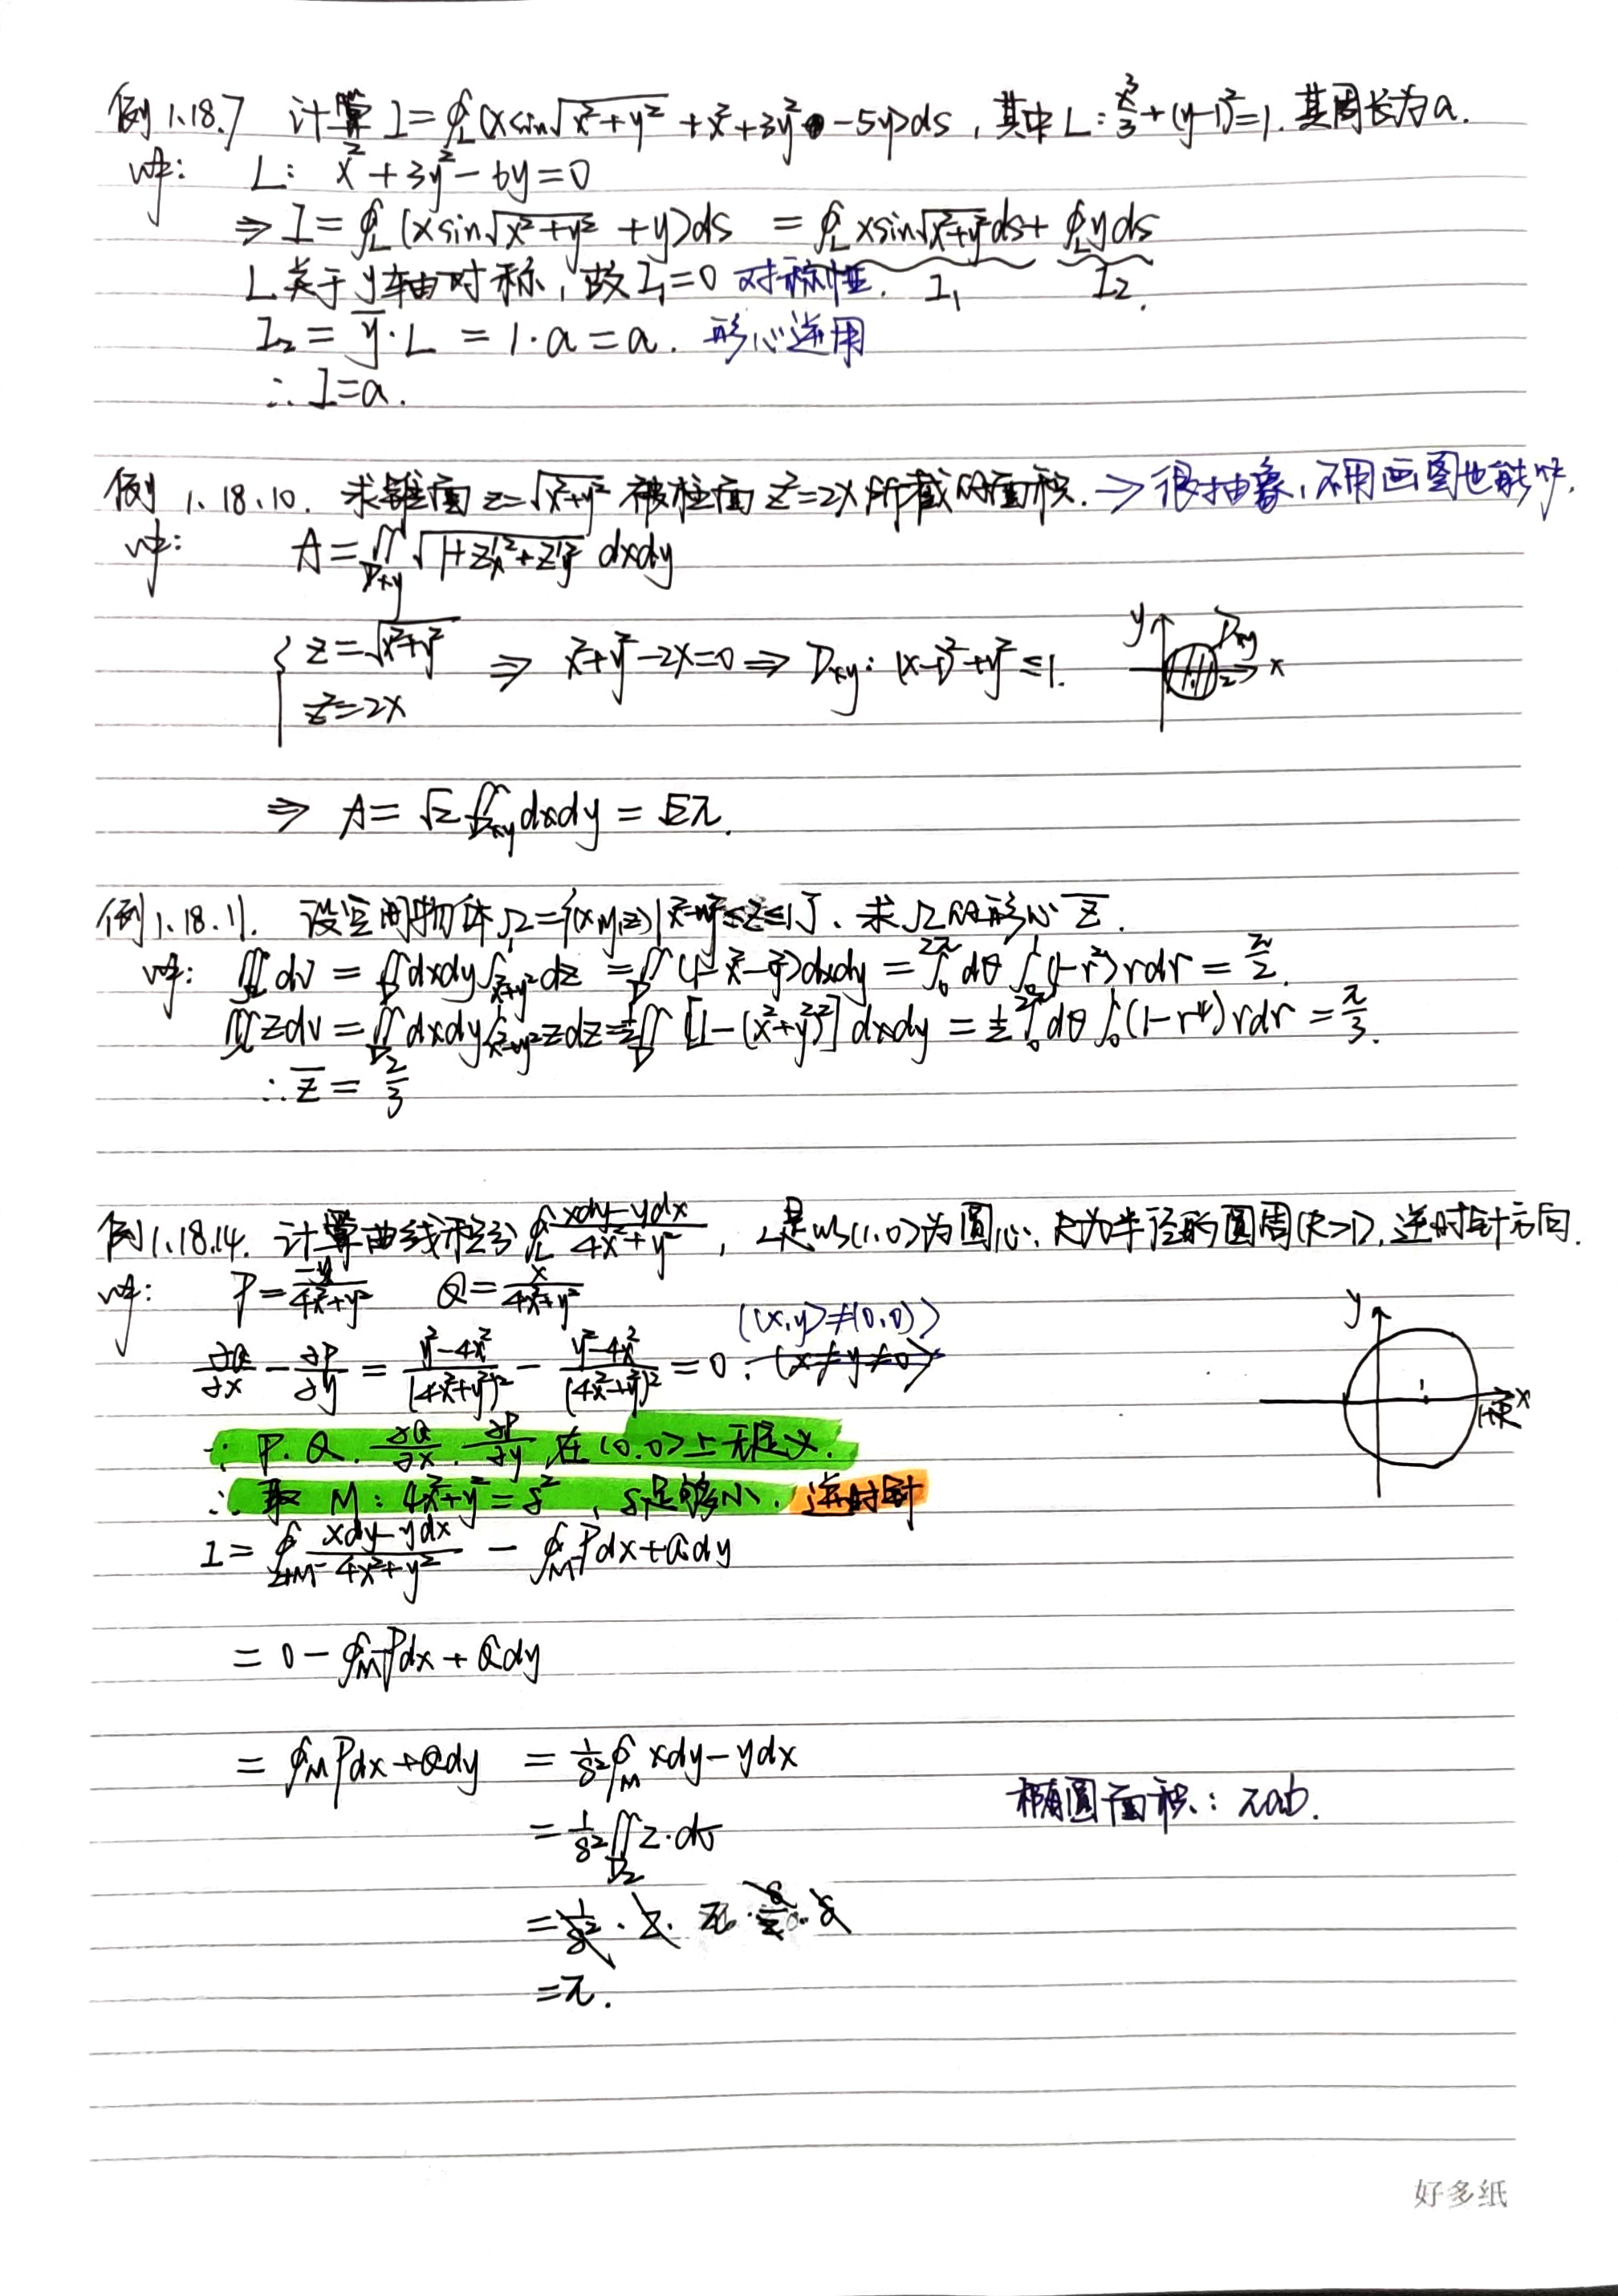 例1.18.7 计算 I=∮_L(xsin√(x²+y²)+x²+3y²-5y)ds,其中L:x²/3+(y-1)²=1.其周长为a.
解: L: x²+3y²-6y=0
⇒ I=∮_L(xsin√(x²+y²)+y)ds =∮_L xsin√(x²+y²)ds+∮_L yds
L关于y轴对称,故I₁=0 对称性. I₁ I₂.
I₂=ȳ·L=1·a=a. 形心逆用
∴I=a.
例1.18.10. 求锥面z=√(x²+y²)被柱面z²=2x所截的面积.⇒很抽象,不用画图也能解.
解: A=∬_Dxy √(1+z'x²+z'y²) dxdy
{ z=√(x²+y²)
z²=2x ⇒ x²+y²-2x=0 ⇒ Dxy:(x-1)²+y²≤1. y Dxy 1 2 x
⇒ A=√2∬_Dxy dxdy=√2π.
例1.18.11. 设空间物体Ω={(x,y,z)|x²+y²≤z≤1}.求Ω的形心z̄.
解: ∭_Ω dv=∬_D dxdy∫_{x²+y²}^1 dz=∬_D(1-x²-y²)dxdy=∫_0^{2π}dθ∫_0^1(1-r²)rdr=π/2.
∭_Ω zdv=∬_D dxdy∫_{x²+y²}^1 zdz=½∬_D[1-(x²+y²)²]dxdy=½∫_0^{2π}dθ∫_0^1(1-r⁴)rdr=π/3.
∴z̄=2/3
例1.18.14. 计算曲线积分∮_L (xdy-ydx)/(4x²+y²),L是以(1,0)为圆心,R为半径的圆周(R>1),逆时针方向.
解: P=-y/(4x²+y²) Q=x/(4x²+y²)
((x,y)≠(0,0))
∂Q/∂x-∂P/∂y=(y²-4x²)/(4x²+y²)²-(y²-4x²)/(4x²+y²)²=0. (x≠y≠0)
y 1 1+R x
∵P.Q.∂Q/∂x.∂P/∂y在(0,0)上无定义.
∴取M:4x²+y²=δ²,δ足够小.逆时针
I=∮_{L+M⁻}(xdy-ydx)/(4x²+y²)-∮_{M⁻}Pdx+Qdy
=0-∮_{M⁻}Pdx+Qdy
=∮_M Pdx+Qdy =1/δ²∮_M xdy-ydx
椭圆面积:πab.
=1/δ²∬_{D₂}2·dσ
=1/δ²·2·π·δ/2·δ
=π.
好多纸